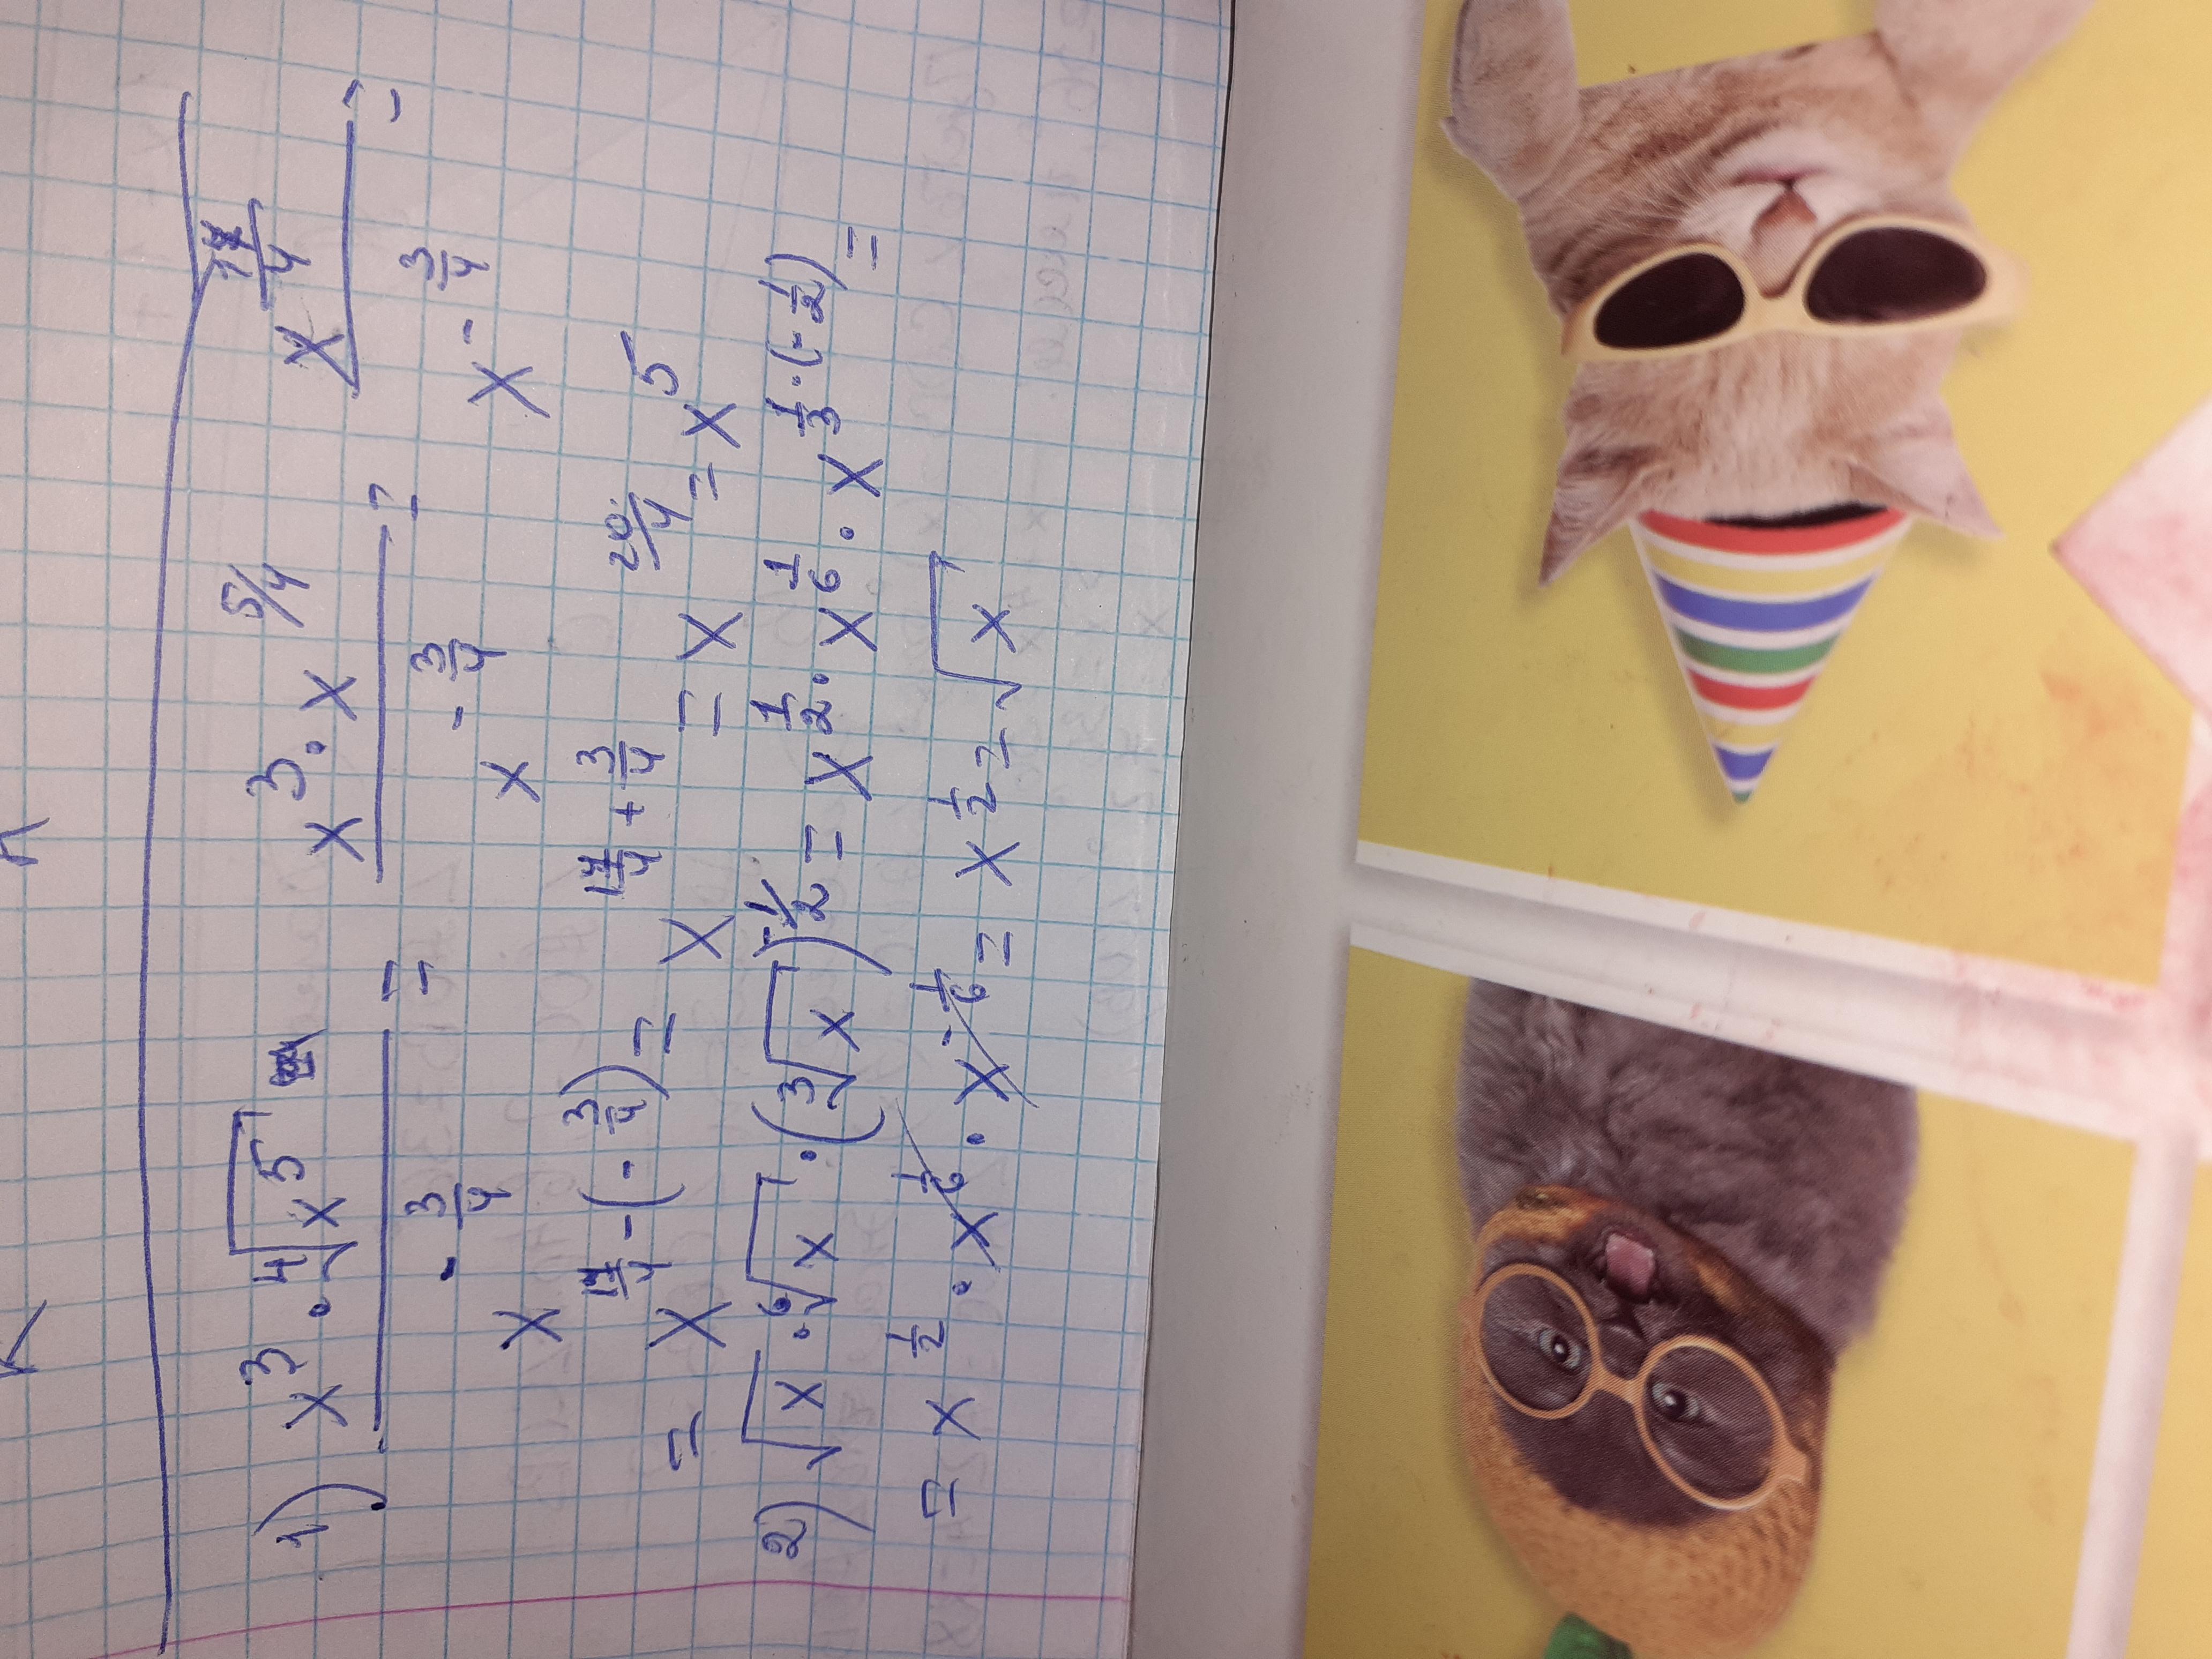 1) x³ · ⁴√x⁵ / x^(-3/4) = x³ · x^(5/4) / x^(-3/4) = x^(17/4) / x^(-3/4) =
= x^(17/4 - (-3/4)) = x^(17/4 + 3/4) = x^(20/4) = x⁵
2) √x · ⁶√x · (³√x)^(-1/2) = x^(1/2) · x^(1/6) · x^(1/3 · (-1/2)) =
= x^(1/2) · x^(1/6) · x^(-1/6) = x^(1/2) = √x